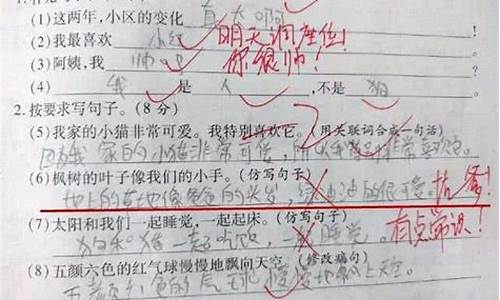 (1)这两年,小区的变化 真大啊
(2)我最喜欢 小红 明天调座位!
(3)阿姨,我 帅吧 你很帅!
(4) 我 是 人 ,不是 狗
2.按要求写句子。(8分)
(5)我家的小猫非常可爱。我特别喜欢它。(用关联词合成一句话)
因为我家的小猫非常可爱,所以我特别非常喜欢它。
(6)枫树的叶子像我们的小手。(仿写句子)
地上的草地像爸爸的头发,绿油油的很可爱。
(7)太阳和我们一起睡觉,一起起床。(仿写句子)
狗和猪一起吃饭,一起睡觉。 有点常识!
(8)五颜六色的红气球慢慢地飘向天空。(修改病句)